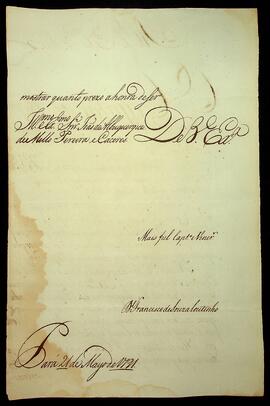 mostrar quanto prezo a honra de ser
Illmo e Exmo Snr João de Albuquerque
de Mello Pereira e Caceres. De V. Exa
Mais fiel Capto Vener
D. Francisco de Souza Coutinho
Pará 21 de Mayo de 1791